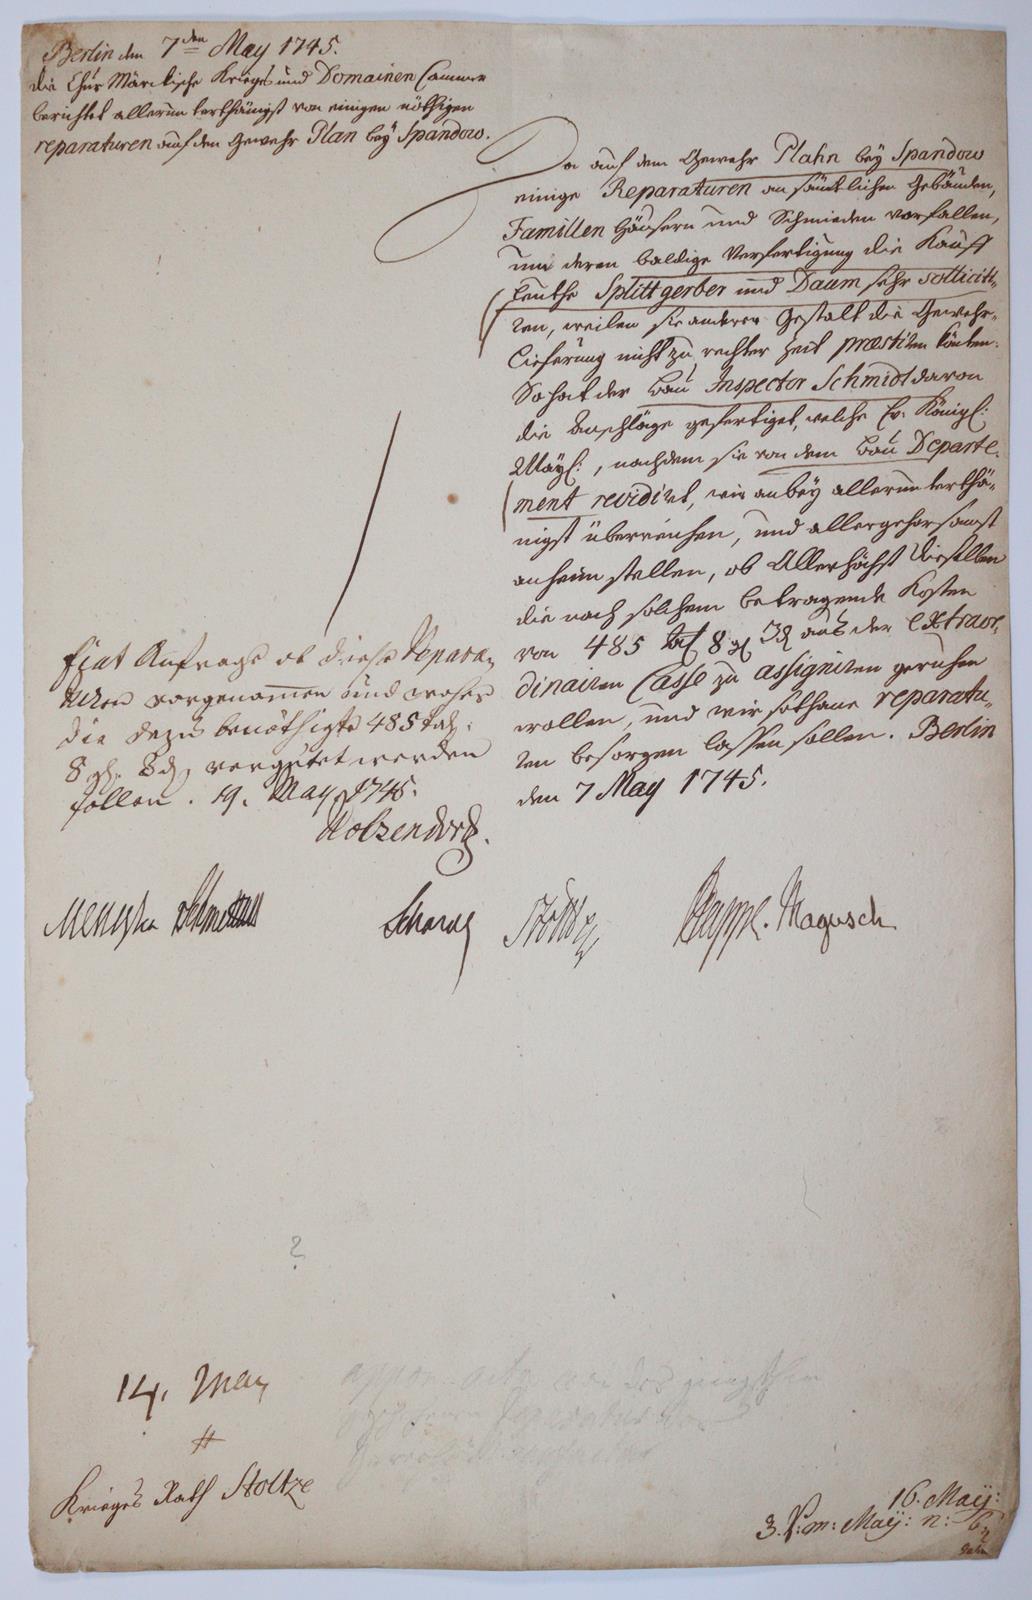 Berlin den 7den May 1745.
die Chur Märckische Krieges und Domainen Cammer
berichtet allerunterthänigst von einigen nöthigen
reparaturen auf den Gewehr Plan bey Spandow.
Da auf dem Gewehr Plahn bey Spandow
einige Reparaturen an sämtlichen Gebäuden,
Familien Häusern und Schmieden vorfallen,
um deren baldige Verfertigung die Kauff
Leuthe Splittgerber und Daum sehr sollicitir-
ren, weilen sie anderer Gestalt die Gewehr-
Lieferung nicht zu rechter Zeit præstiren könten.
So hat der Bau Inspector Schmidt davon
die Anschläge gefertiget, welche Ew. Königl:
Mayt:, nachdem sie von dem Bau Departe-
ment revidirt, wir anbey allerunterthä-
nigst überreichen, und allergehorsamst
anheim stellen, ob Allerhöchst Dieselben
die nach solchem betragende Kosten
von 485 rt 8 gl 3 d aus der extraor-
dinairen Casse zu assigniren geruhen
wollen, und wir sothane reparatu-
ren besorgen lassen sollen. Berlin
den 7 May 1745.
fiat Anfrage ob diese Repara-
turen vorgenommen und woher
die dazu benöthigte 485 tal:
8 gl. 3 d. vergütet werden
sollen. 19. May 1745.
Holzendorff.
Schmettau
Magusch
?
14. May
#
Krieges Rath Stoltze
16. Maij:
3. P: m: Maij: n: 6.